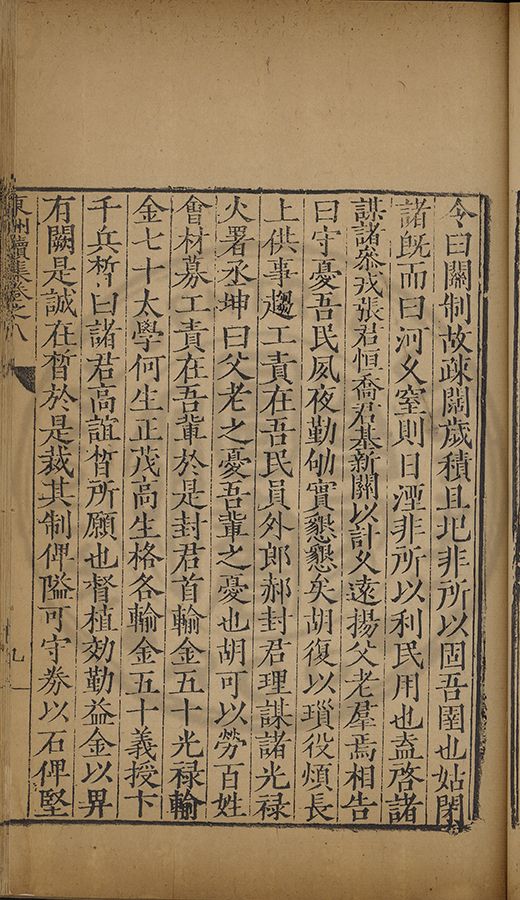 令曰關制故疎闊歲積且圯非所以固吾圉也姑閉
諸既而曰河乆窒則日湮非所以利民用也盍啓諸
謀諸叅戎張君恒喬君基新關以計乆遠揚父老羣焉相告
曰守憂吾民夙夜勤劬實懇懇矣胡復以瑣役煩長
上供事趨工責在吾民員外郎郝封君理謀諸光禄
火署丞坤曰父老之憂吾軰之憂也胡可以勞百姓
會材募工責在吾軰於是封君首輸金五十光禄輸
金七十太學何生正茂高生格各輸金五十義授卞
千兵晳曰諸君高誼晳所願也督植効勤益金以畀
有闕是誠在晳於是裁其制俾隘可守券以石俾堅
東州續集卷之八
九